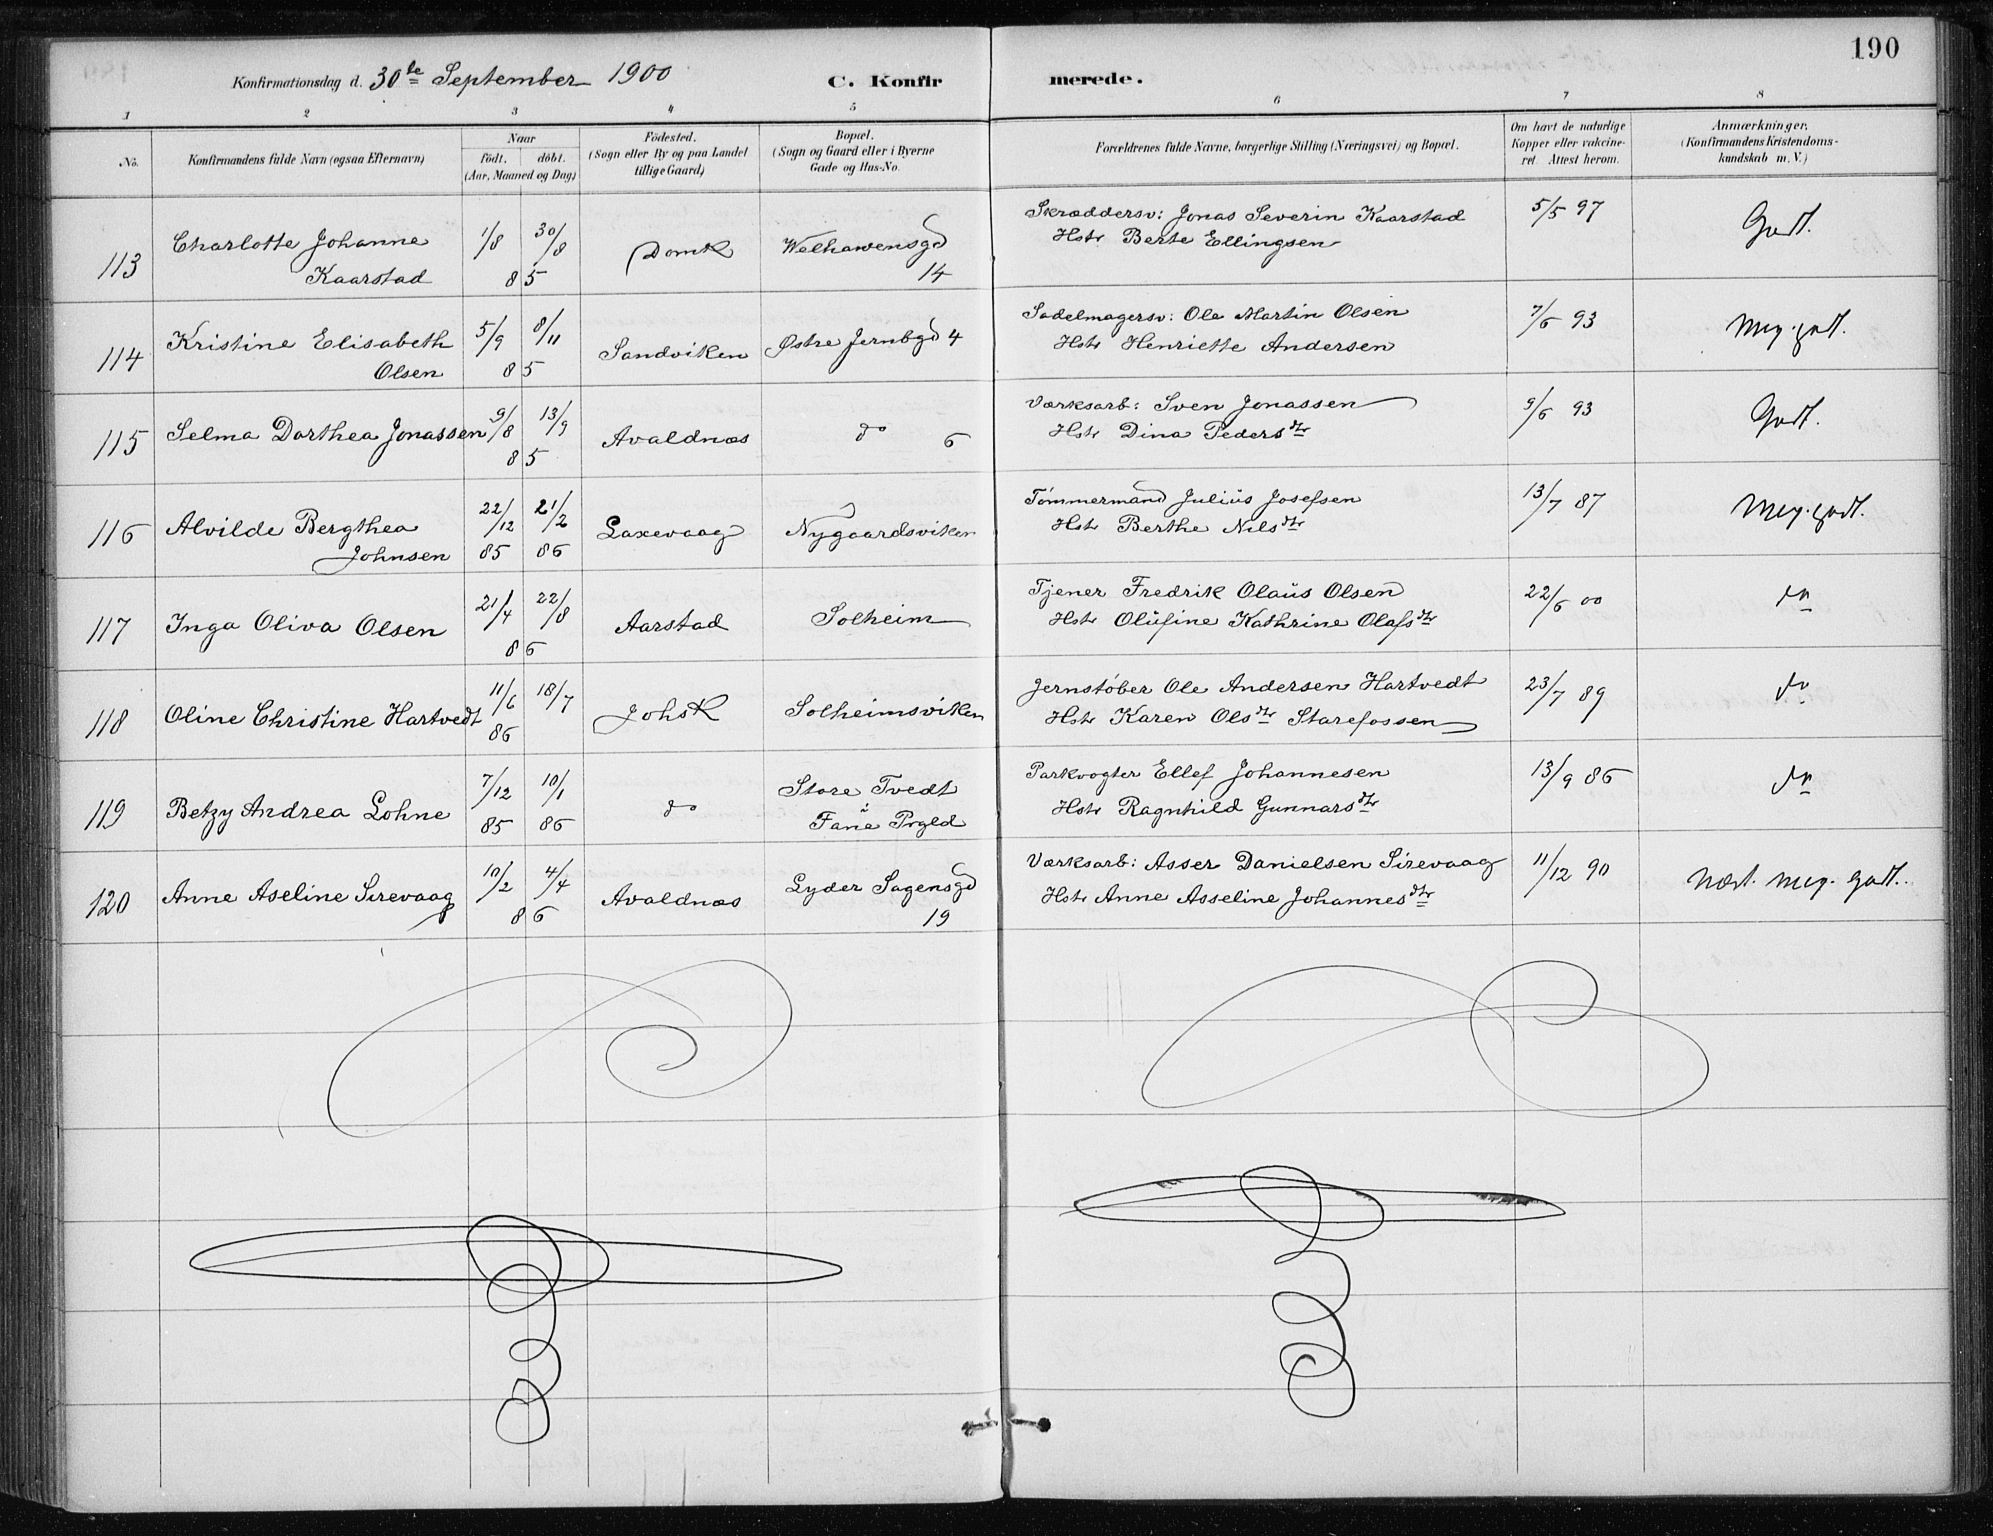 190
Konfirmationsdag d. 30te September 1900 C. Konfirmerede.
1 2 3 4 5 6 7 8
No. Konfirmandens fulde Navn (ogsaa Efternavn) Naar födt. döbt. (Aar, Maaned og Dag) Födested. (Sogn eller By og paa Landet tillige Gaard) Bopæl. (Sogn og Gaard eller i Byerne Gade og Hus-No. Forældrenes fulde Navne, borgerlige Stilling (Næringsvei) og Bopæl. Om havt de naturlige Kopper eller vakcineret. Attest herom. Anmærkninger. (Konfirmandens Kristendomskundskab m. V.)
113 Charlotte Johanne Kaarstad 1/8 30/8 85 Domk Welhavensgd 14 Skræddersv: Jonas Severin Kaarstad Hstr Berte Ellingsen 5/5 97 Godt.
114 Kristine Elisabeth Olsen 5/9 8/11 85 Sandviken Østre Jernbgd 4 Sadelmagersv: Ole Martin Olsen Hstr Henriette Andersen 7/6 93 Meg. godt.
115 Selma Dorthea Jonassen 9/8 13/9 85 Avaldnæs do 6 Værksarb: Sven Jonassen Hstr Dina Pedersdtr 9/6 93 Godt.
116 Alvilde Bergthea Johnsen 22/12 85 21/2 86 Laxevaag Nygaardsviken Tømmermand Julius Josefsen Hstr Berthe Nilsdtr 13/7 87 Meg. godt.
117 Inga Oliva Olsen 21/4 22/8 86 Aarstad Solheim Tjener Fredrik Olaus Olsen Hstr Olufine Kathrine Olafsdtr 22/6 00 do
118 Oline Christine Hartvedt 11/6 86 18/7 Johsk Solheimsviken Jernstøber Ole Andersen Hartvedt Hstr Karen Olsdtr Starefossen 23/7 89 do
119 Betzy Andrea Lohne 7/12 85 10/1 86 do Store Tvedt i Fane Prgld Parkvogter Ellef Johannesen Hstr Ragnhild Gunnarsdtr 13/9 86 do
120 Anne Aseline Sirevaag 10/2 4/4 86 Avaldnæs Lyder Sagensgd 19 Værksarb: Asser Danielsen Sirevaag Hstr Anne Asseline Johannesdtr 11/12 90 Næst. meg. godt.